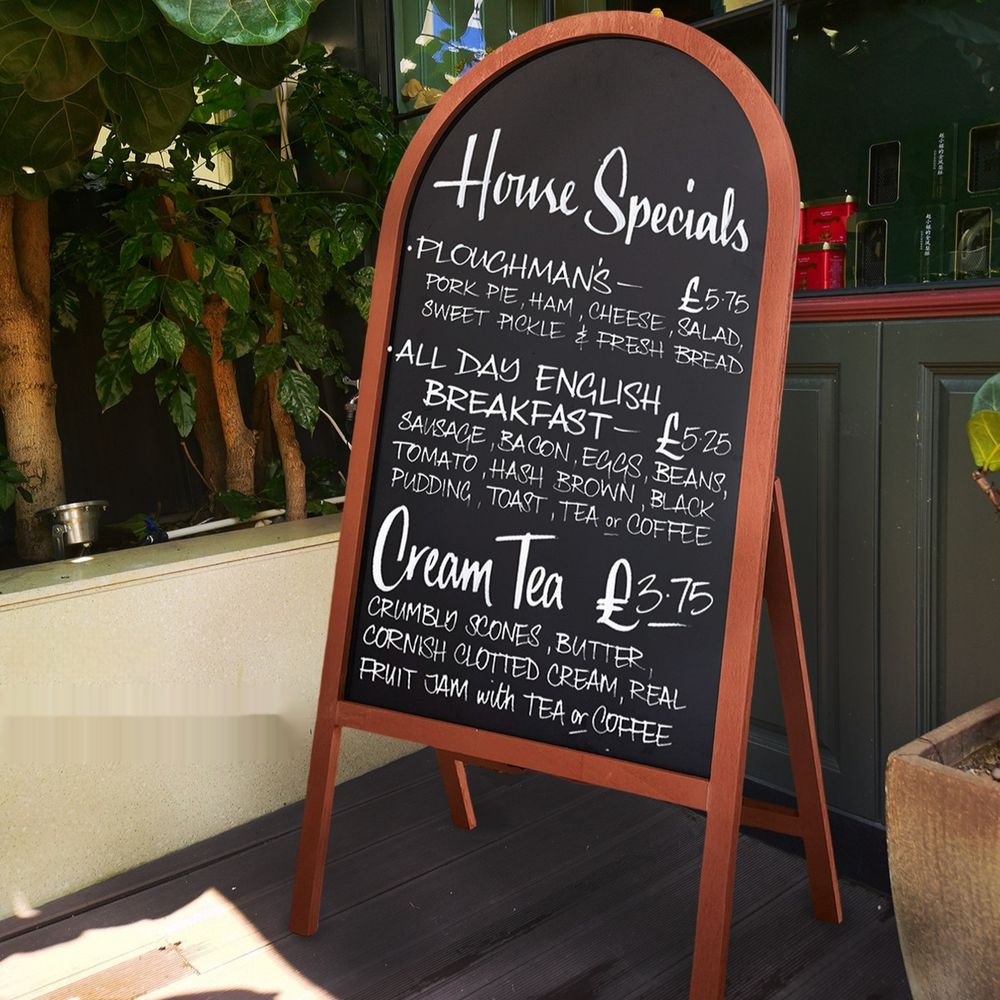 House Specials
· PLOUGHMAN'S — £5·75
PORK PIE, HAM, CHEESE, SALAD,
SWEET PICKLE & FRESH BREAD
· ALL DAY ENGLISH
BREAKFAST — £5·25
SAUSAGE, BACON, EGGS, BEANS,
TOMATO, HASH BROWN, BLACK
PUDDING, TOAST, TEA or COFFEE
Cream Tea £3·75
CRUMBLY SCONES, BUTTER,
CORNISH CLOTTED CREAM, REAL
FRUIT JAM with TEA or COFFEE